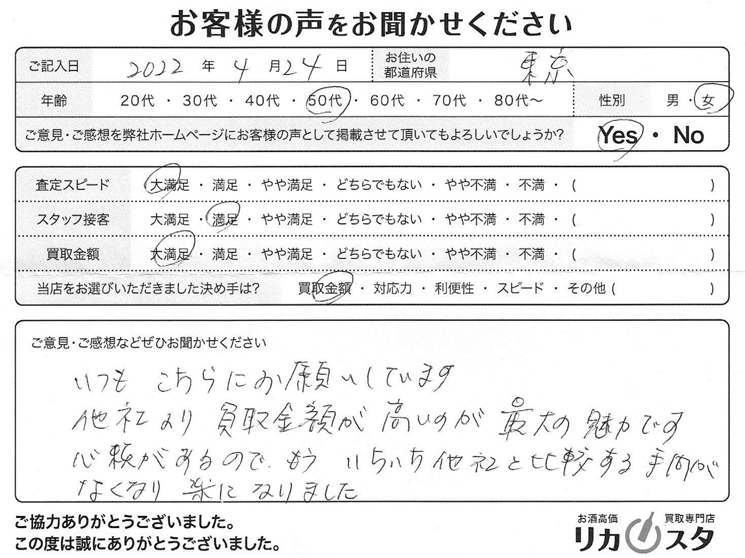 お客様の声をお聞かせください
ご記入日 2022 年 4 月 24 日 お住いの都道府県 東京
年齢 20代・30代・40代・50代・60代・70代・80代〜 性別 男・女
ご意見・ご感想を弊社ホームページにお客様の声として掲載させて頂いてもよろしいでしょうか? Yes・No
査定スピード 大満足・満足・やや満足・どちらでもない・やや不満・不満・( )
スタッフ接客 大満足・満足・やや満足・どちらでもない・やや不満・不満・( )
買取金額 大満足・満足・やや満足・どちらでもない・やや不満・不満・( )
当店をお選びいただきました決め手は? 買取金額・対応力・利便性・スピード・その他( )
ご意見・ご感想などぜひお聞かせください
いつも こちらにお願いしています
他社より 買取金額が 高いのが 最大の魅力です
があるので、もう いちいち他社と比較する手間が
なくなり 楽になりました
ご協力ありがとうございました。
この度は誠にありがとうございました。
お酒高価 買取専門店
リカスタ